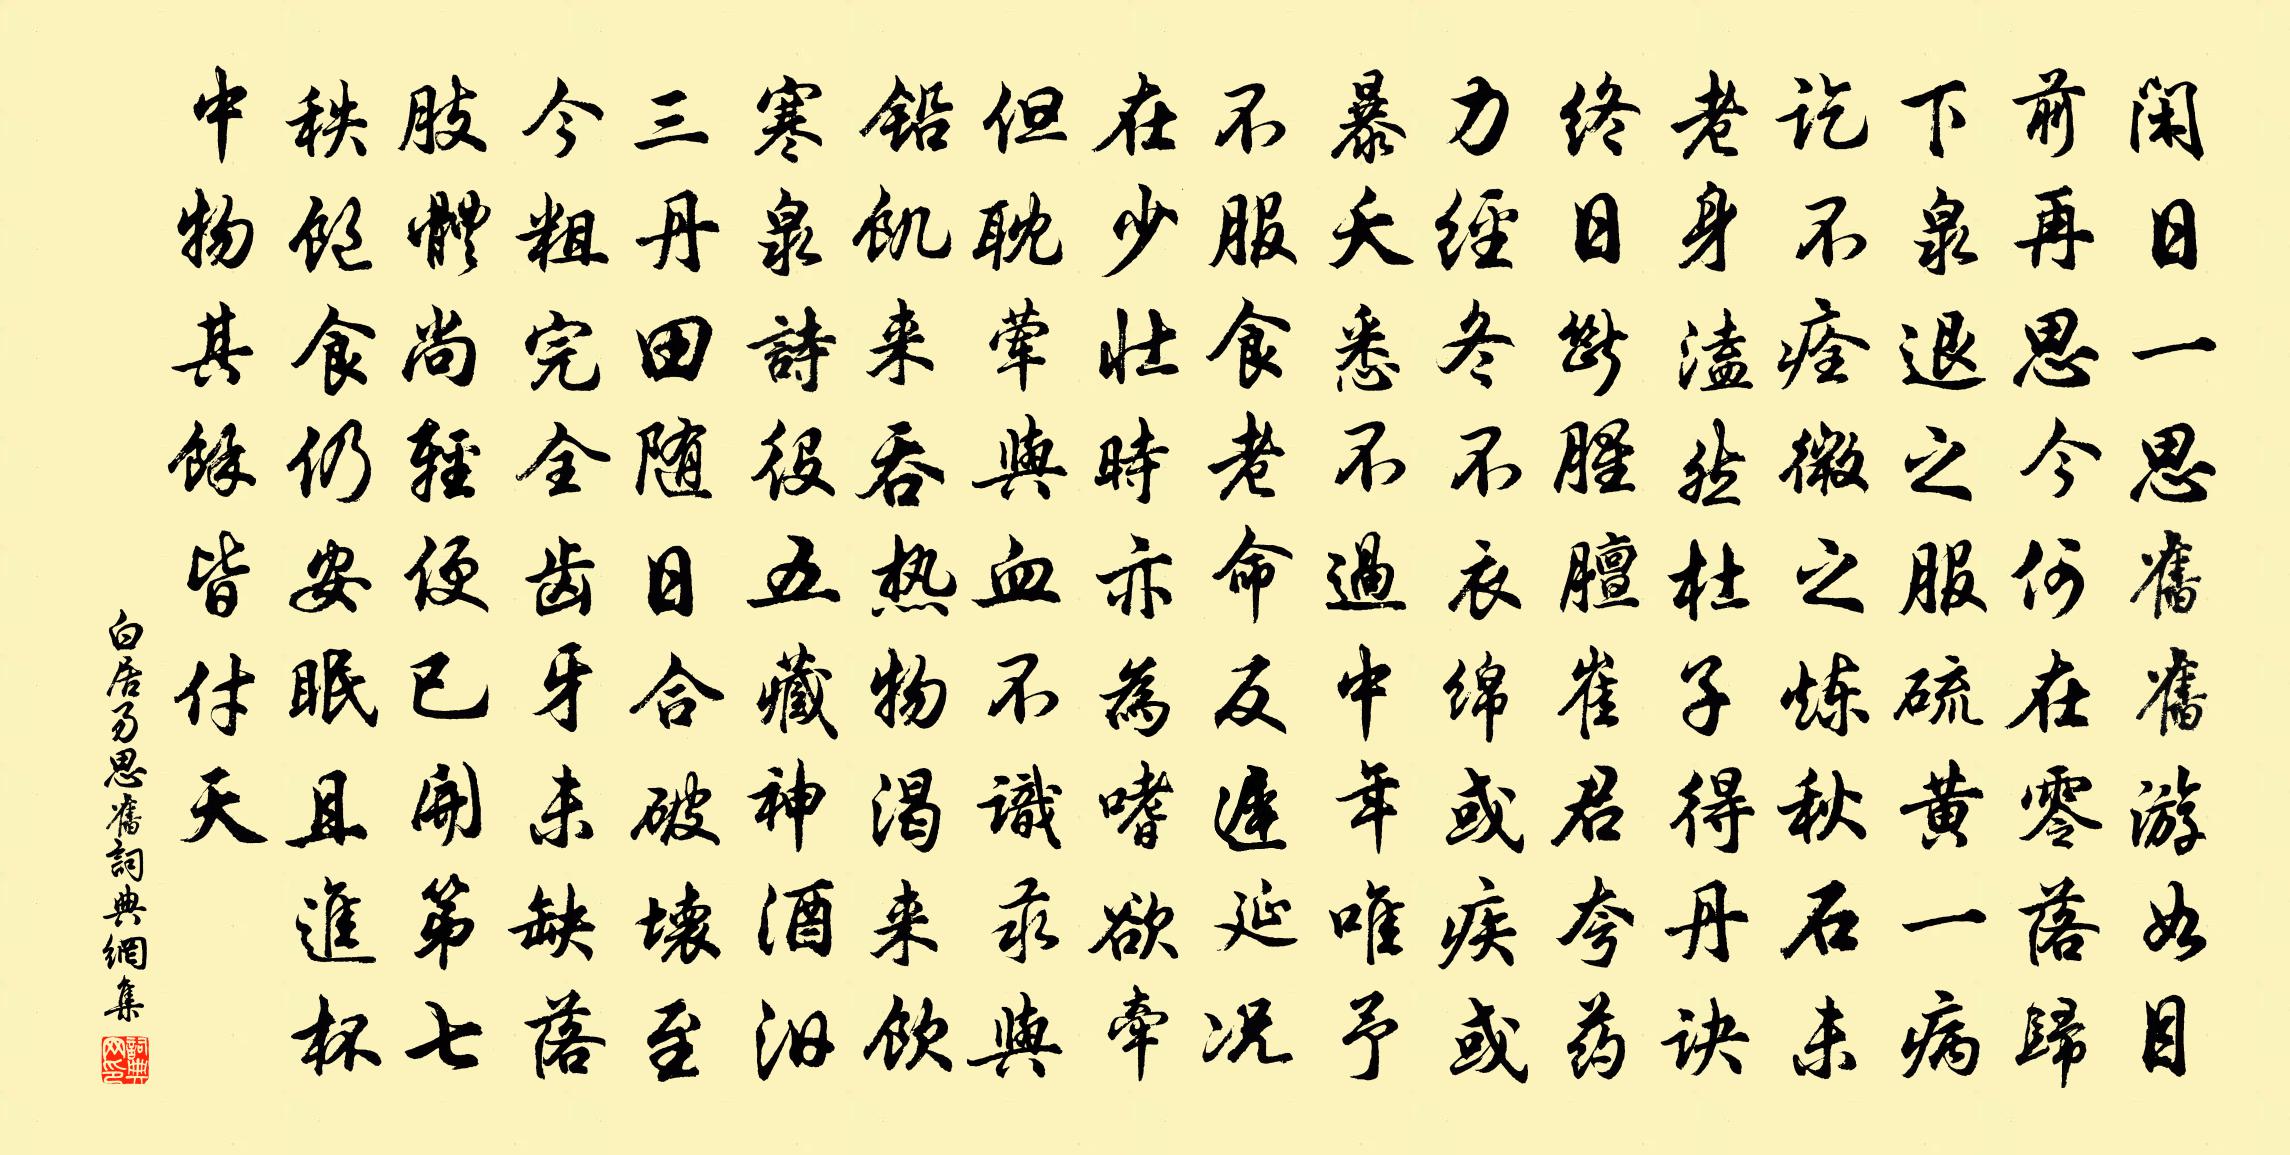 闲日一思舊舊游如目
前再思今何在零落歸
下泉退之服硫黄一病
讫不痊微之炼秋石未
老身溘然杜子得丹诀
终日斷腥膻崔君夸药
力經冬不衣绵或疾或
暴夭悉不過中年唯予
不服食老命反遲延况
在少壮時亦為嗜欲牽
但耽荤與血不識汞與
铅飢来吞热物渴来饮
寒泉詩役五藏神酒汩
三丹田随日合破壊至
今粗完全齿牙未缺落
肢體尚輕便已開第七
秩飽食仍安眠且進杯
中物其餘皆付天
白居易思舊詞典網集
詞典网印